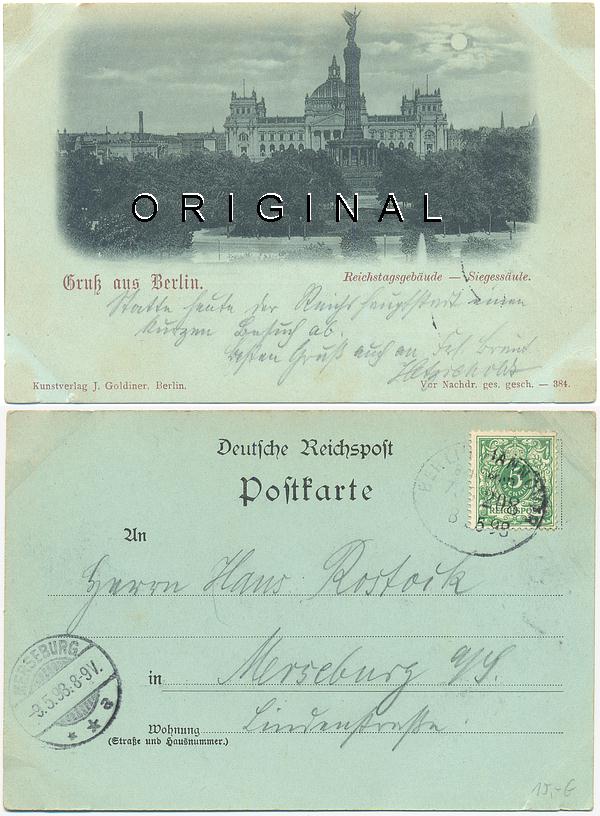 ORIGINAL
Gruß aus Berlin.
Reichstagsgebäude — Siegessäule.
Statte heute der Reichshauptstadt einen
kurzen Besuch ab.
Gruß auch an Frl.
Kunstverlag J. Goldiner, Berlin.
Vor Nachdr. ges. gesch. — 384.
Deutsche Reichspost
Postkarte
5
REICHSPOST
An
Herrn Hans Rostock
in Merseburg a/S.
Lindenstraße.
Wohnung
(Straße und Hausnummer.)
MERSEBURG
-8.5.98.8-9V.
15,-€